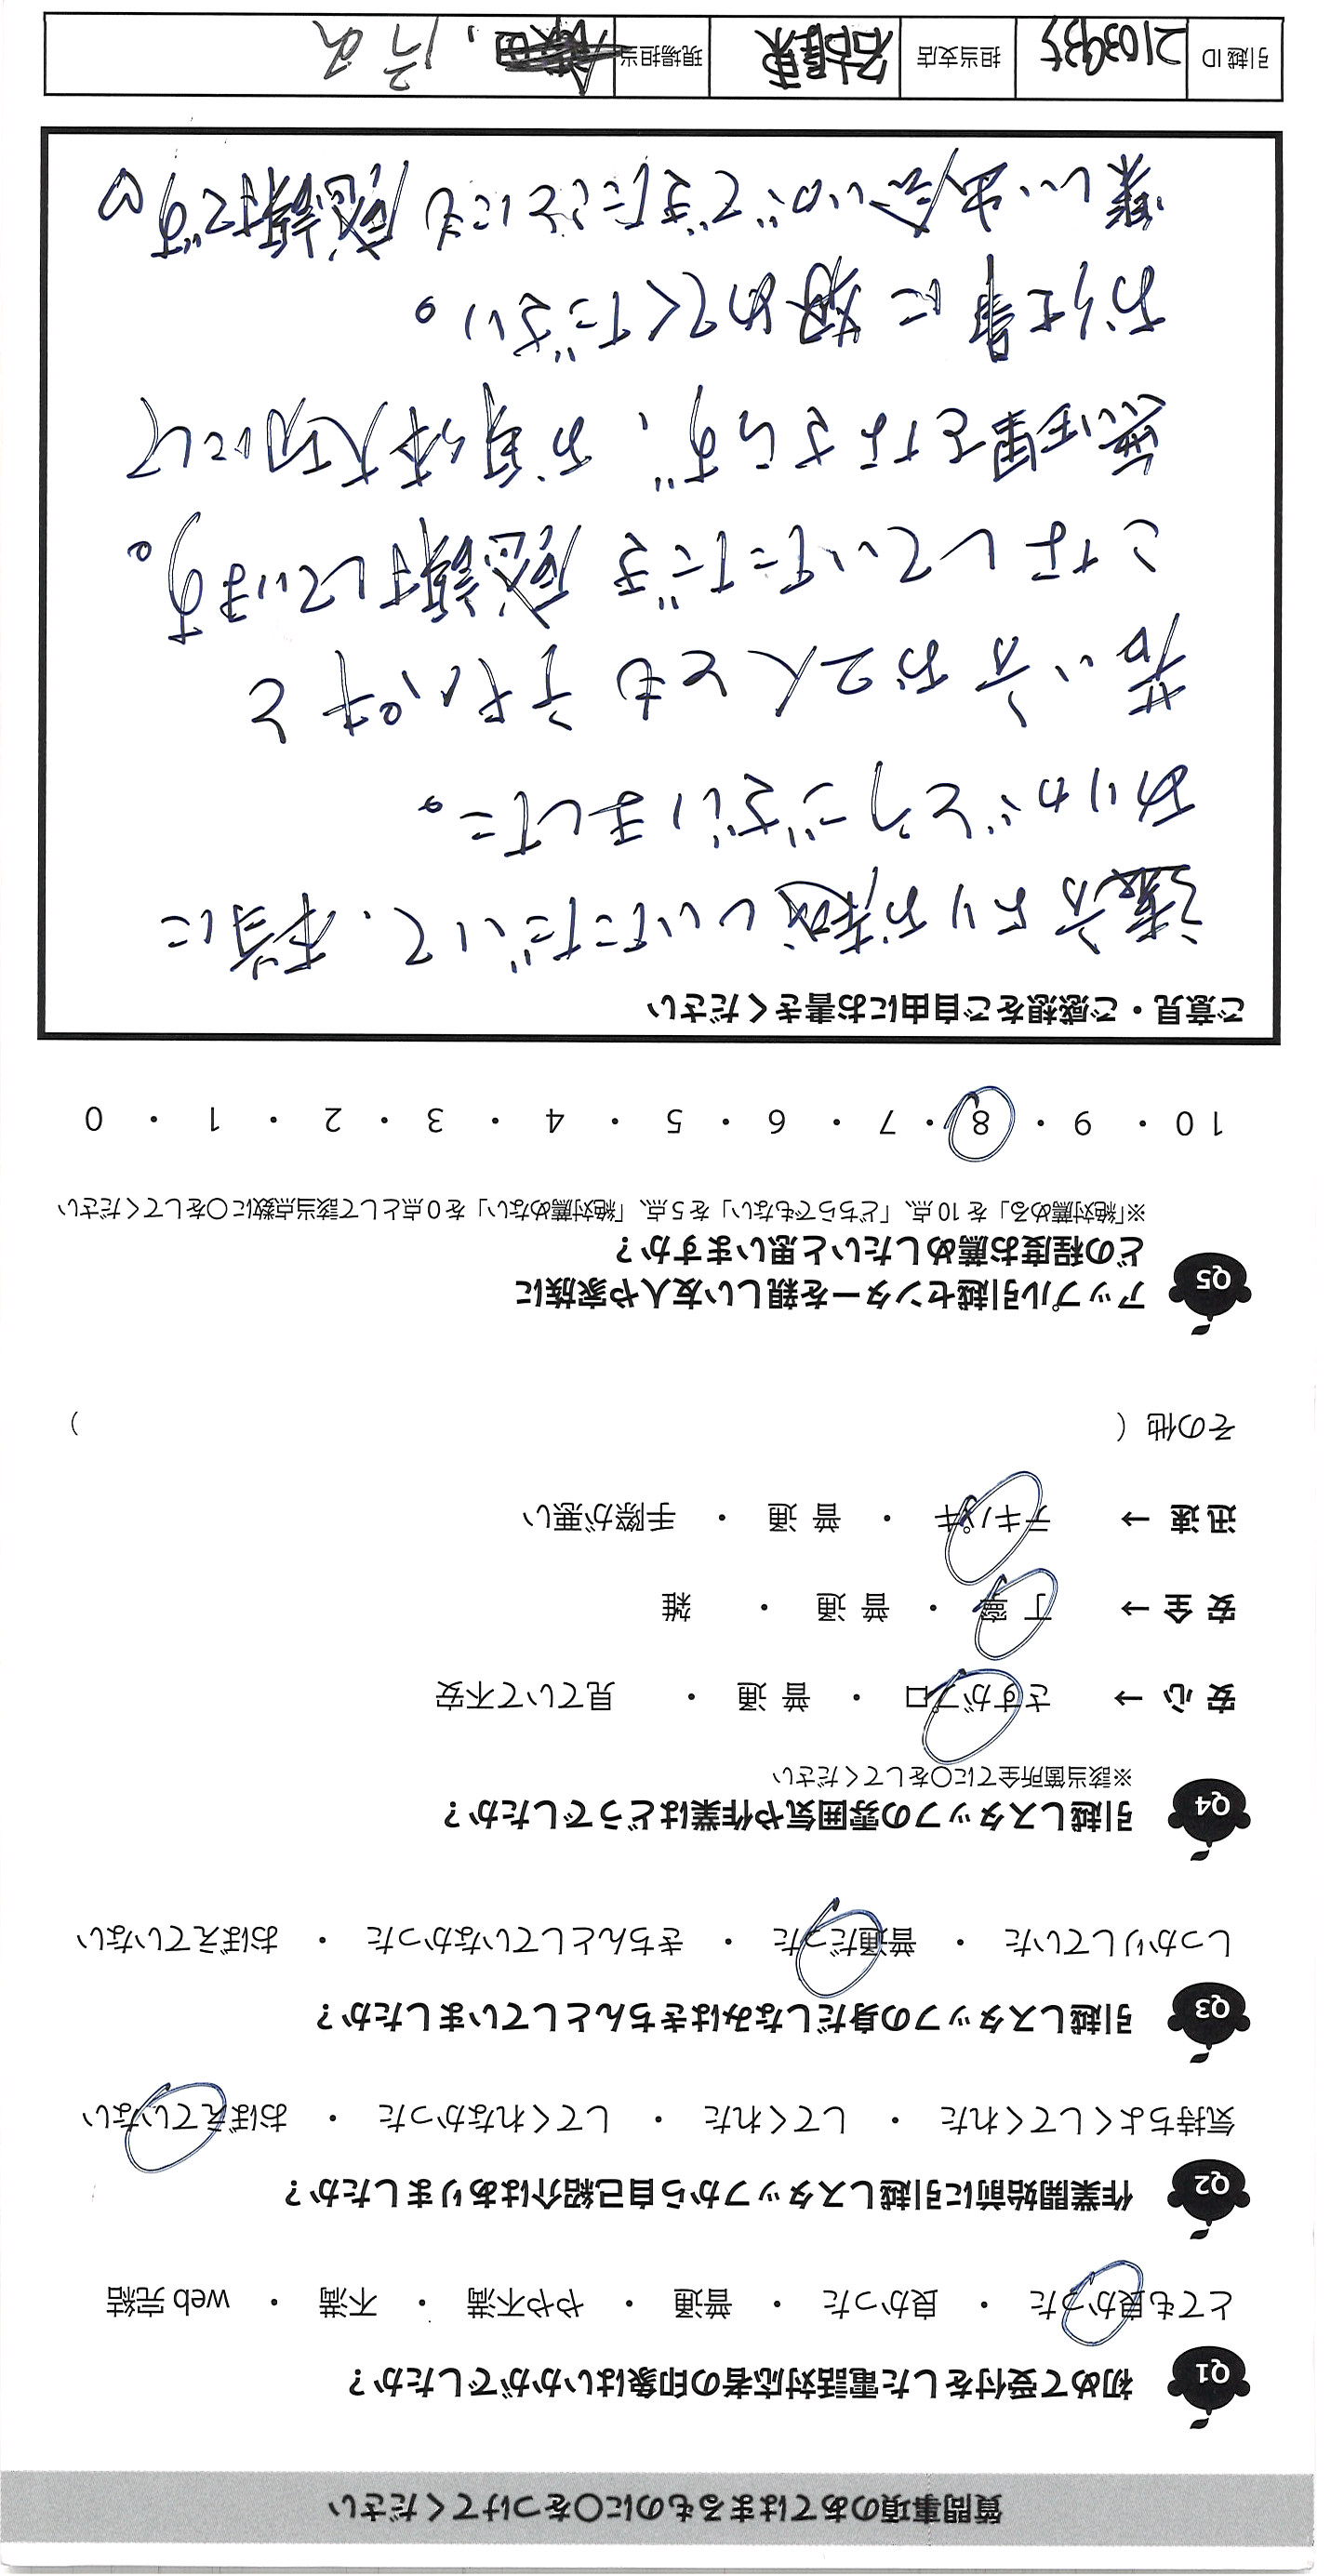 質問事項のあてはまるものに○をつけてください
Q1 初めて受付をした電話対応者の印象はいかがでしたか？
とても良かった ・ 良かった ・ 普通 ・ やや不満 ・ 不満 ・ web 完結
Q2 作業開始前に引越しスタッフから自己紹介はありましたか？
気持ちよくしてくれた ・ してくれた ・ してくれなかった ・ おぼえていない
Q3 引越しスタッフの身だしなみはきちんとしていましたか？
しっかりしていた ・ 普通だった ・ きちんとしていなかった ・ おぼえていない
Q4 引越しスタッフの雰囲気や作業はどうでしたか？
※該当箇所全てに○をしてください
安 心 → さすがプロ ・ 普 通 ・ 見ていて不安
安 全 → 丁 寧 ・ 普 通 ・ 雑
迅 速 → テキパキ ・ 普 通 ・ 手際が悪い
その他（ ）
Q5 アップル引越センターを親しい友人や家族に
どの程度お薦めしたいと思いますか？
※「絶対薦める」を 10 点、「どちらでもない」を 5 点、「絶対薦めない」を 0 点として該当点数に○をしてください
10 ・ 9 ・ 8 ・ 7 ・ 6 ・ 5 ・ 4 ・ 3 ・ 2 ・ 1 ・ 0
ご意見・ご感想をご自由にお書きください
遠方よりお越しいただいて、本当に
ありがとうございました。
若い方お2人ともテキパキと
こなしていただき感謝しています。
無理をなさらず、お身体大切にして
お仕事に努めてください。
楽しい出会いができたことにも感謝です
引越 ID 2103935 担当支店 名古屋東 現場担当